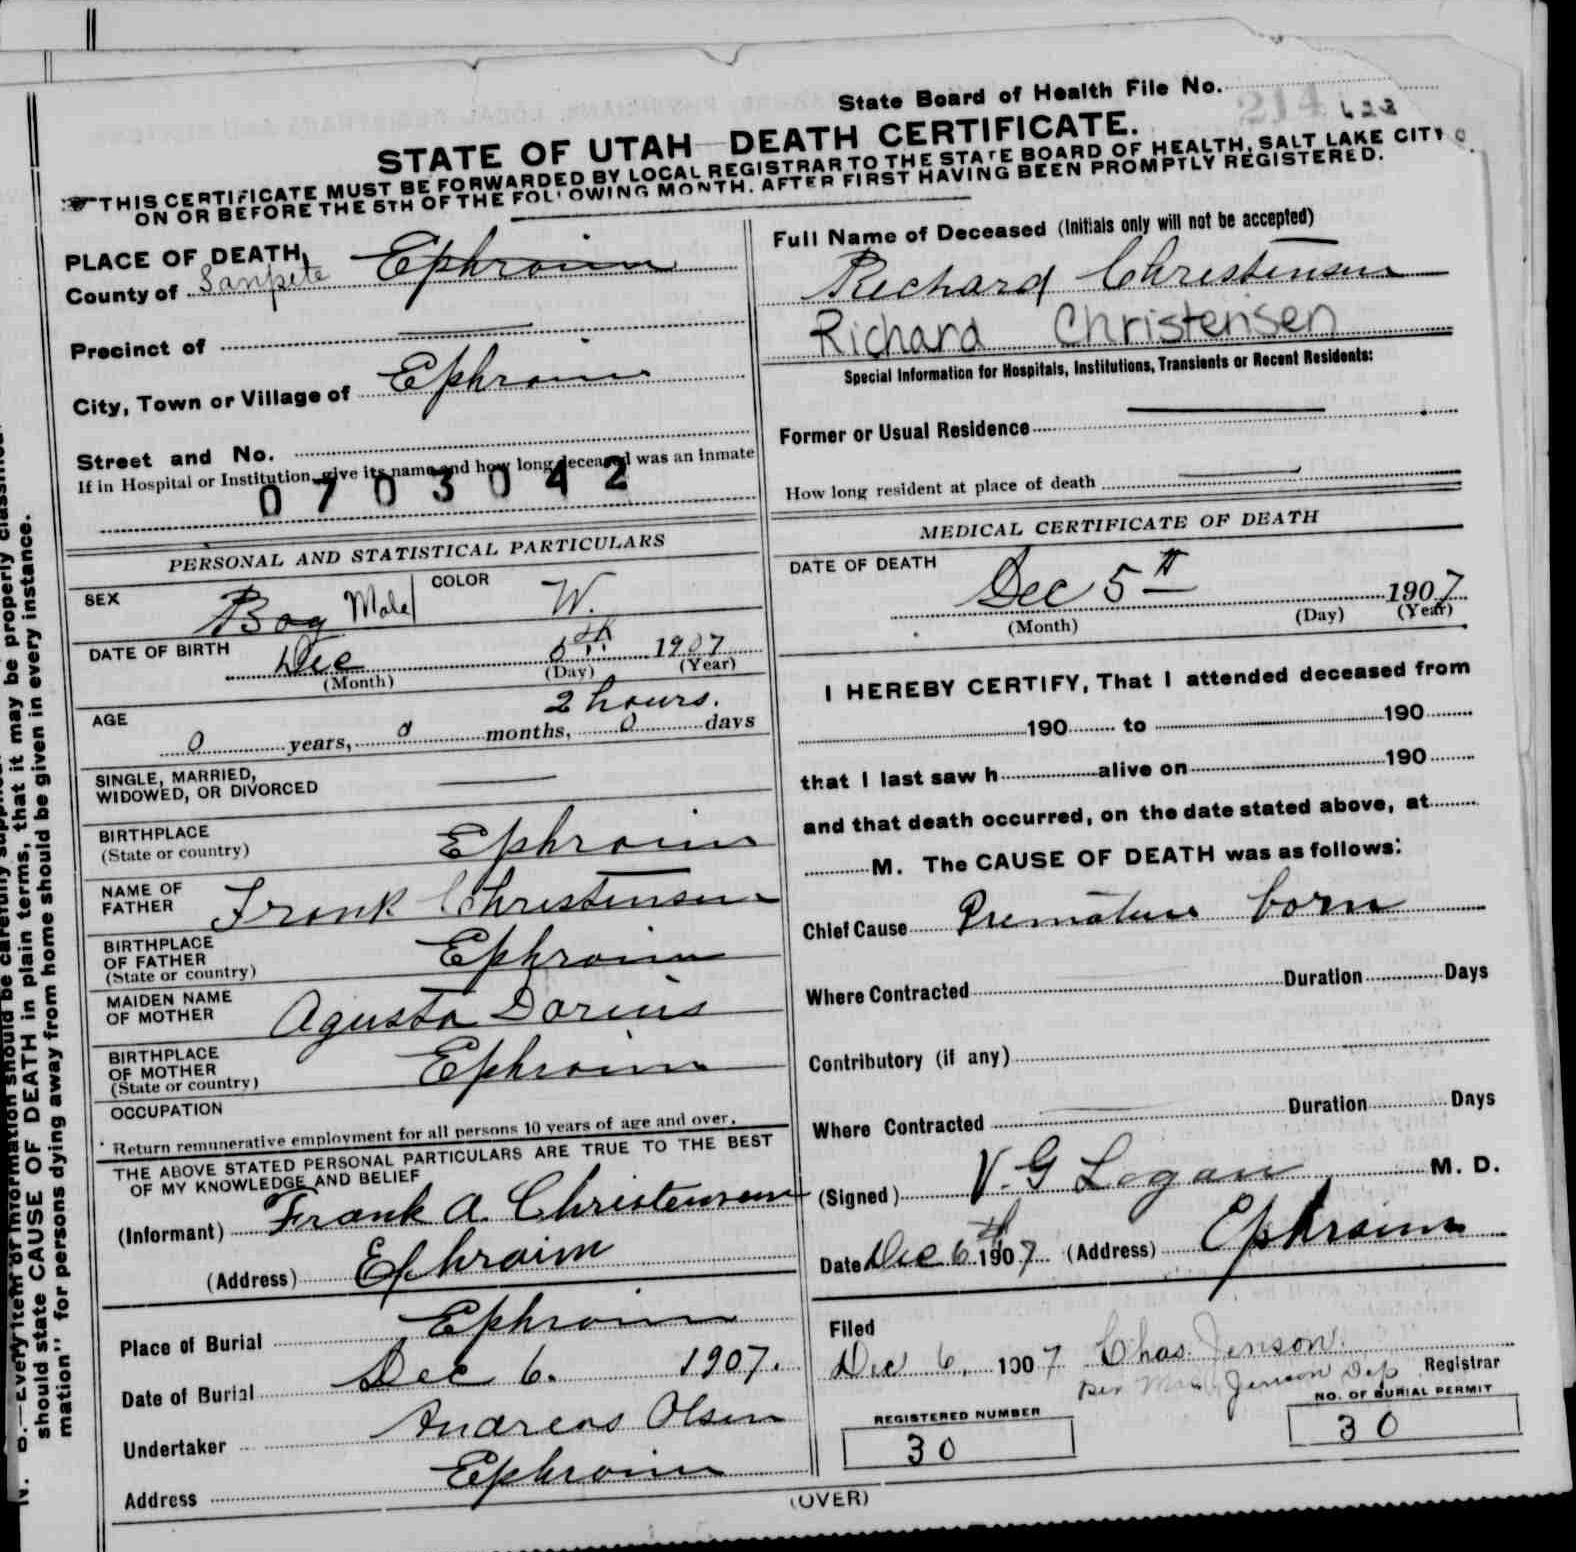 State Board of Health File No. 214 622
STATE OF UTAH—DEATH CERTIFICATE.
THIS CERTIFICATE MUST BE FORWARDED BY LOCAL REGISTRAR TO THE STATE BOARD OF HEALTH, SALT LAKE CITY
ON OR BEFORE THE 5TH OF THE FOLLOWING MONTH, AFTER FIRST HAVING BEEN PROMPTLY REGISTERED.
PLACE OF DEATH,
County of Sanpete Ephraim
Precinct of
City, Town or Village of Ephraim
Street and No.
If in Hospital or Institution, give its name and how long deceased was an inmate
0703042
PERSONAL AND STATISTICAL PARTICULARS
SEX Boy Male COLOR W.
DATE OF BIRTH Dec 5th 1907
(Month) (Day) (Year)
2 hours.
AGE 0 years, 0 months, 0 days
SINGLE, MARRIED,
WIDOWED, OR DIVORCED
BIRTHPLACE
(State or country) Ephraim
NAME OF
FATHER Frank Christensen
BIRTHPLACE
OF FATHER
(State or country) Ephraim
MAIDEN NAME
OF MOTHER Agusta Dorius
BIRTHPLACE
OF MOTHER
(State or country) Ephraim
OCCUPATION
Return remunerative employment for all persons 10 years of age and over.
THE ABOVE STATED PERSONAL PARTICULARS ARE TRUE TO THE BEST
OF MY KNOWLEDGE AND BELIEF
(Informant) Frank A. Christensen
(Address) Ephraim
Place of Burial Ephraim
Date of Burial Dec 6. 1907.
Undertaker Andreas Olsen
Address Ephraim
Full Name of Deceased (Initials only will not be accepted)
Richard Christensen
Richard Christensen
Special Information for Hospitals, Institutions, Transients or Recent Residents:
Former or Usual Residence
How long resident at place of death
MEDICAL CERTIFICATE OF DEATH
DATE OF DEATH
Dec 5th 1907
(Month) (Day) (Year)
I HEREBY CERTIFY, That I attended deceased from
190 to 190
that I last saw h alive on 190
and that death occurred, on the date stated above, at
M. The CAUSE OF DEATH was as follows:
Chief Cause Premature born
Where Contracted Duration Days
Contributory (if any)
Where Contracted Duration Days
(Signed) V. G Logan M. D.
Date Dec 6th 1907 (Address) Ephraim
Filed
Dec 6, 1907 Chas. Jenson
per Jenson Dep Registrar
REGISTERED NUMBER
30
NO. OF BURIAL PERMIT
30
(OVER)
N. B.—Every item of information should be carefully
should state CAUSE OF DEATH in plain terms, that it may be properly
mation" for persons dying away from home should be given in every instance.